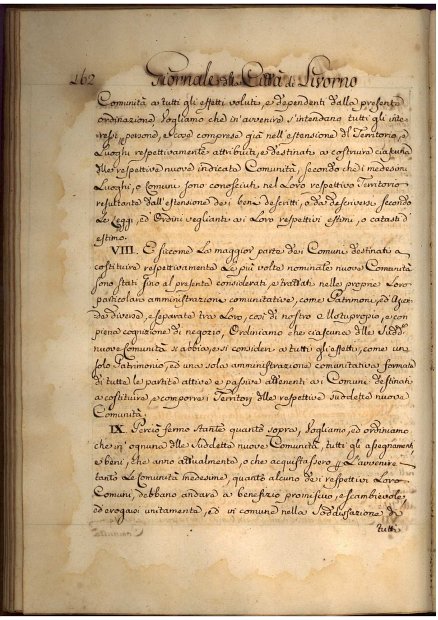 162 Giornale della Città di Livorno
Comunità a tutti gli effetti voluti, e dependenti dalla presente
ordinazione Vogliamo che in avvenire s'intendano tutti gli inte-
ressi, persone, e cose comprese già nell'estensione dl Territorio, e
Luoghi respettivamente attribuiti, e destinati a costruire ciascuna
dlle respettive nuove indicate Comunità, secondo che i medesimi
Luoghi, o Comuni sono conosciuti nel Loro respettivo Territorio
resultante dall'estensione dei beni descritti, o da descriversi secondo
Le Leggi, ed Ordini veglianti ai Loro respettivi estimi, o catasti d'
estimo.
VIII. E siccome La maggior parte dei Comuni destinati a
costituire respettivamente Le più volte nominate nuove Comunità
sono stati fino al presente considerati, e trattati nelle proprie Loro
particolari amministrazioni comunitative, come Patrimoni, ed Azien-
de diverse, e separate tra Loro, così di nostro Motuproprio, e con
piena cognizione di negozio, Ordiniamo che ciascuna dlle Suddte
nuove Comunità si abbia, e si consideri a tutti gli effetti, come un
solo Patrimonio, ed una sola amministrazione comunitativa formata
di tutte le partite attive e passive attenenti ai Comuni destinati
a costituire, e comporre i Territorj dlle respettive suddette nuove
Comunità.
IX. Perciò fermo stante quanto sopra, Vogliamo, ed ordiniamo
che in ognuna dlle Suddette nuove Comunità, tutti gli assegnamenti
e beni, che anno attualmente, o che acquistassero p L'avvenire
tanto Le Comunità medesime, quanto alcuno dei respettivi Loro
Comuni, debbano andare a benefizio promiscuo, e scambievole,
ed erogarsi unitamente, ed in comune nella Soddisfazione di
tutti